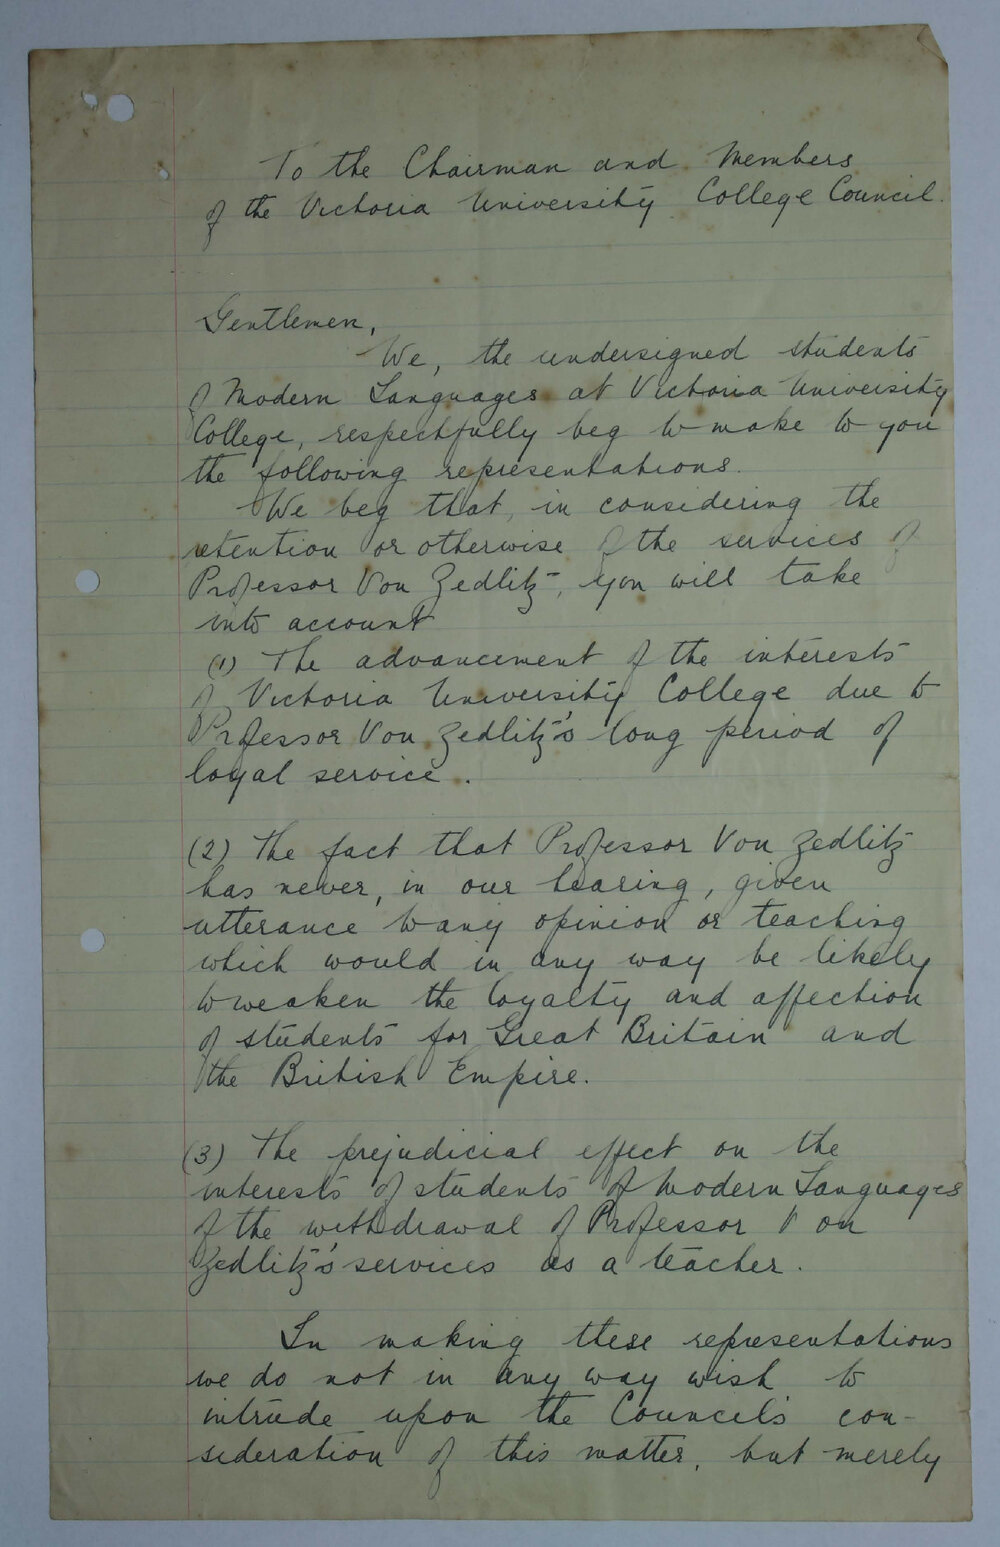 To the Chairman and Members
of the Victoria University College Council.
Gentlemen,
We, the undersigned students
of Modern Languages at Victoria University
College, respectfully beg to make to you
the following representations.
We beg that, in considering the
retention or otherwise of the services of
Professor Von Zedlitz, you will take
into account
(1) The advancement of the interests
of Victoria University College due to
Professor Von Zedlitz's long period of
loyal service.
(2) The fact that Professor Von Zedlitz
has never, in our hearing, given
utterance to any opinion or teaching
which would in any way be likely
to weaken the loyalty and affection
of students for Great Britain and
the British Empire.
(3) The prejudicial effect on the
interests of students of Modern Languages
of the withdrawal of Professor Von
Zedlitz's services as a teacher.
In making these representations
we do not in any way wish to
intrude upon the Council's con-
sideration of this matter, but merely